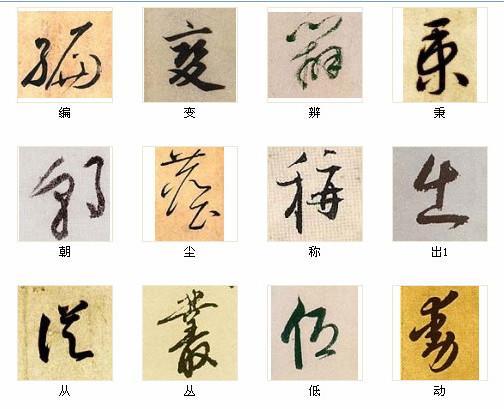 编 变 辨 秉
朝 尘 称 出1
从 丛 低 动